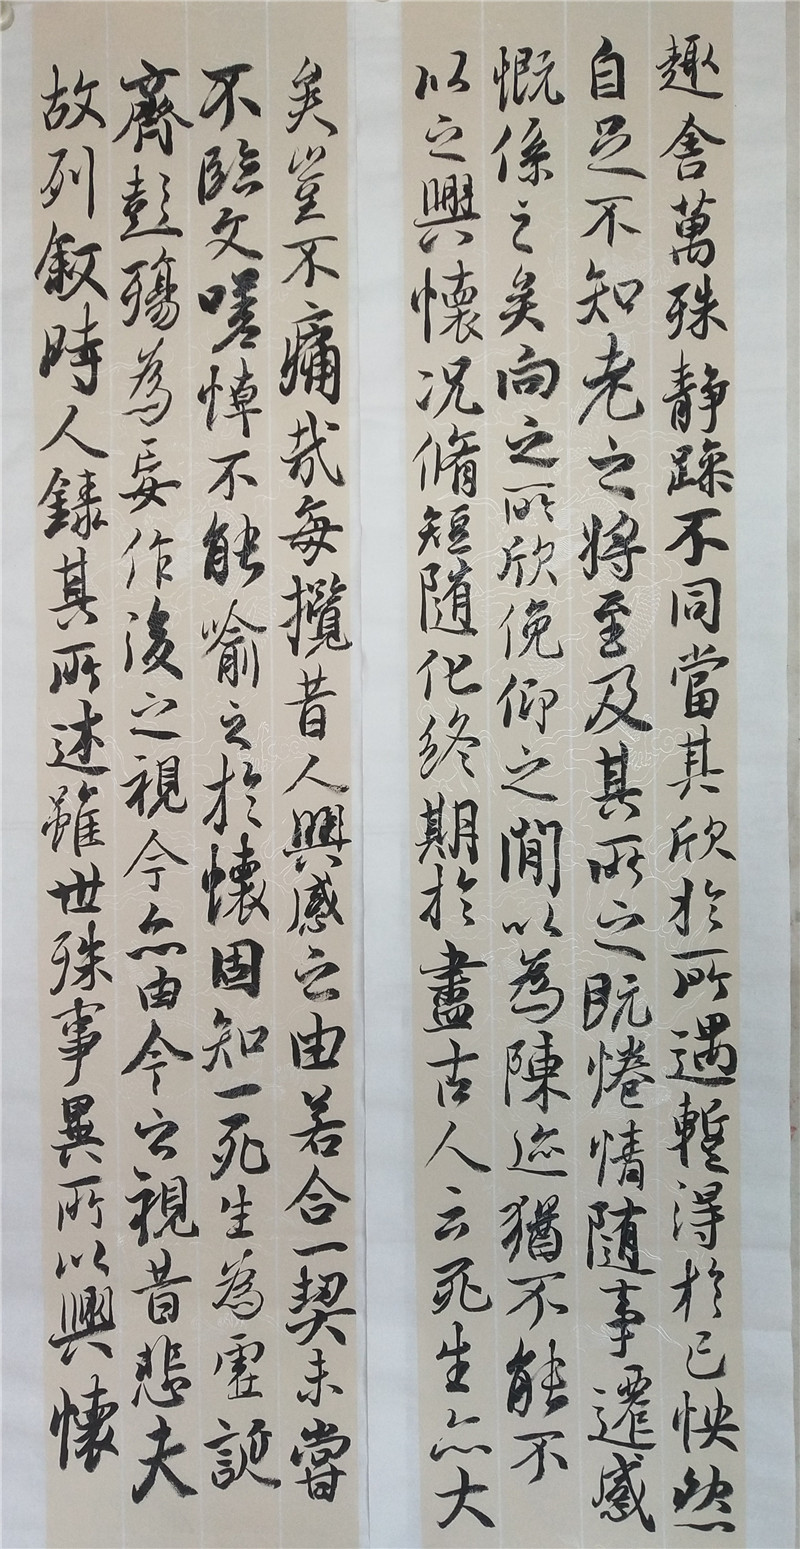 趣舍萬殊靜躁不同當其欣於所遇蹔得於己怏然
自足不知老之將至及其所之既惓情隨事遷感
慨係之矣向之所欣俛仰之閒以為陳迹猶不能不
以之興懷况脩短隨化終期於盡古人云死生亦大
矣豈不痛哉每攬昔人興感之由若合一契未嘗
不臨文嗟悼不能喻之於懷固知一死生為虛誕
齊彭殤為妄作後之視今亦由今之視昔悲夫
故列敘時人錄其所述雖世殊事異所以興懷